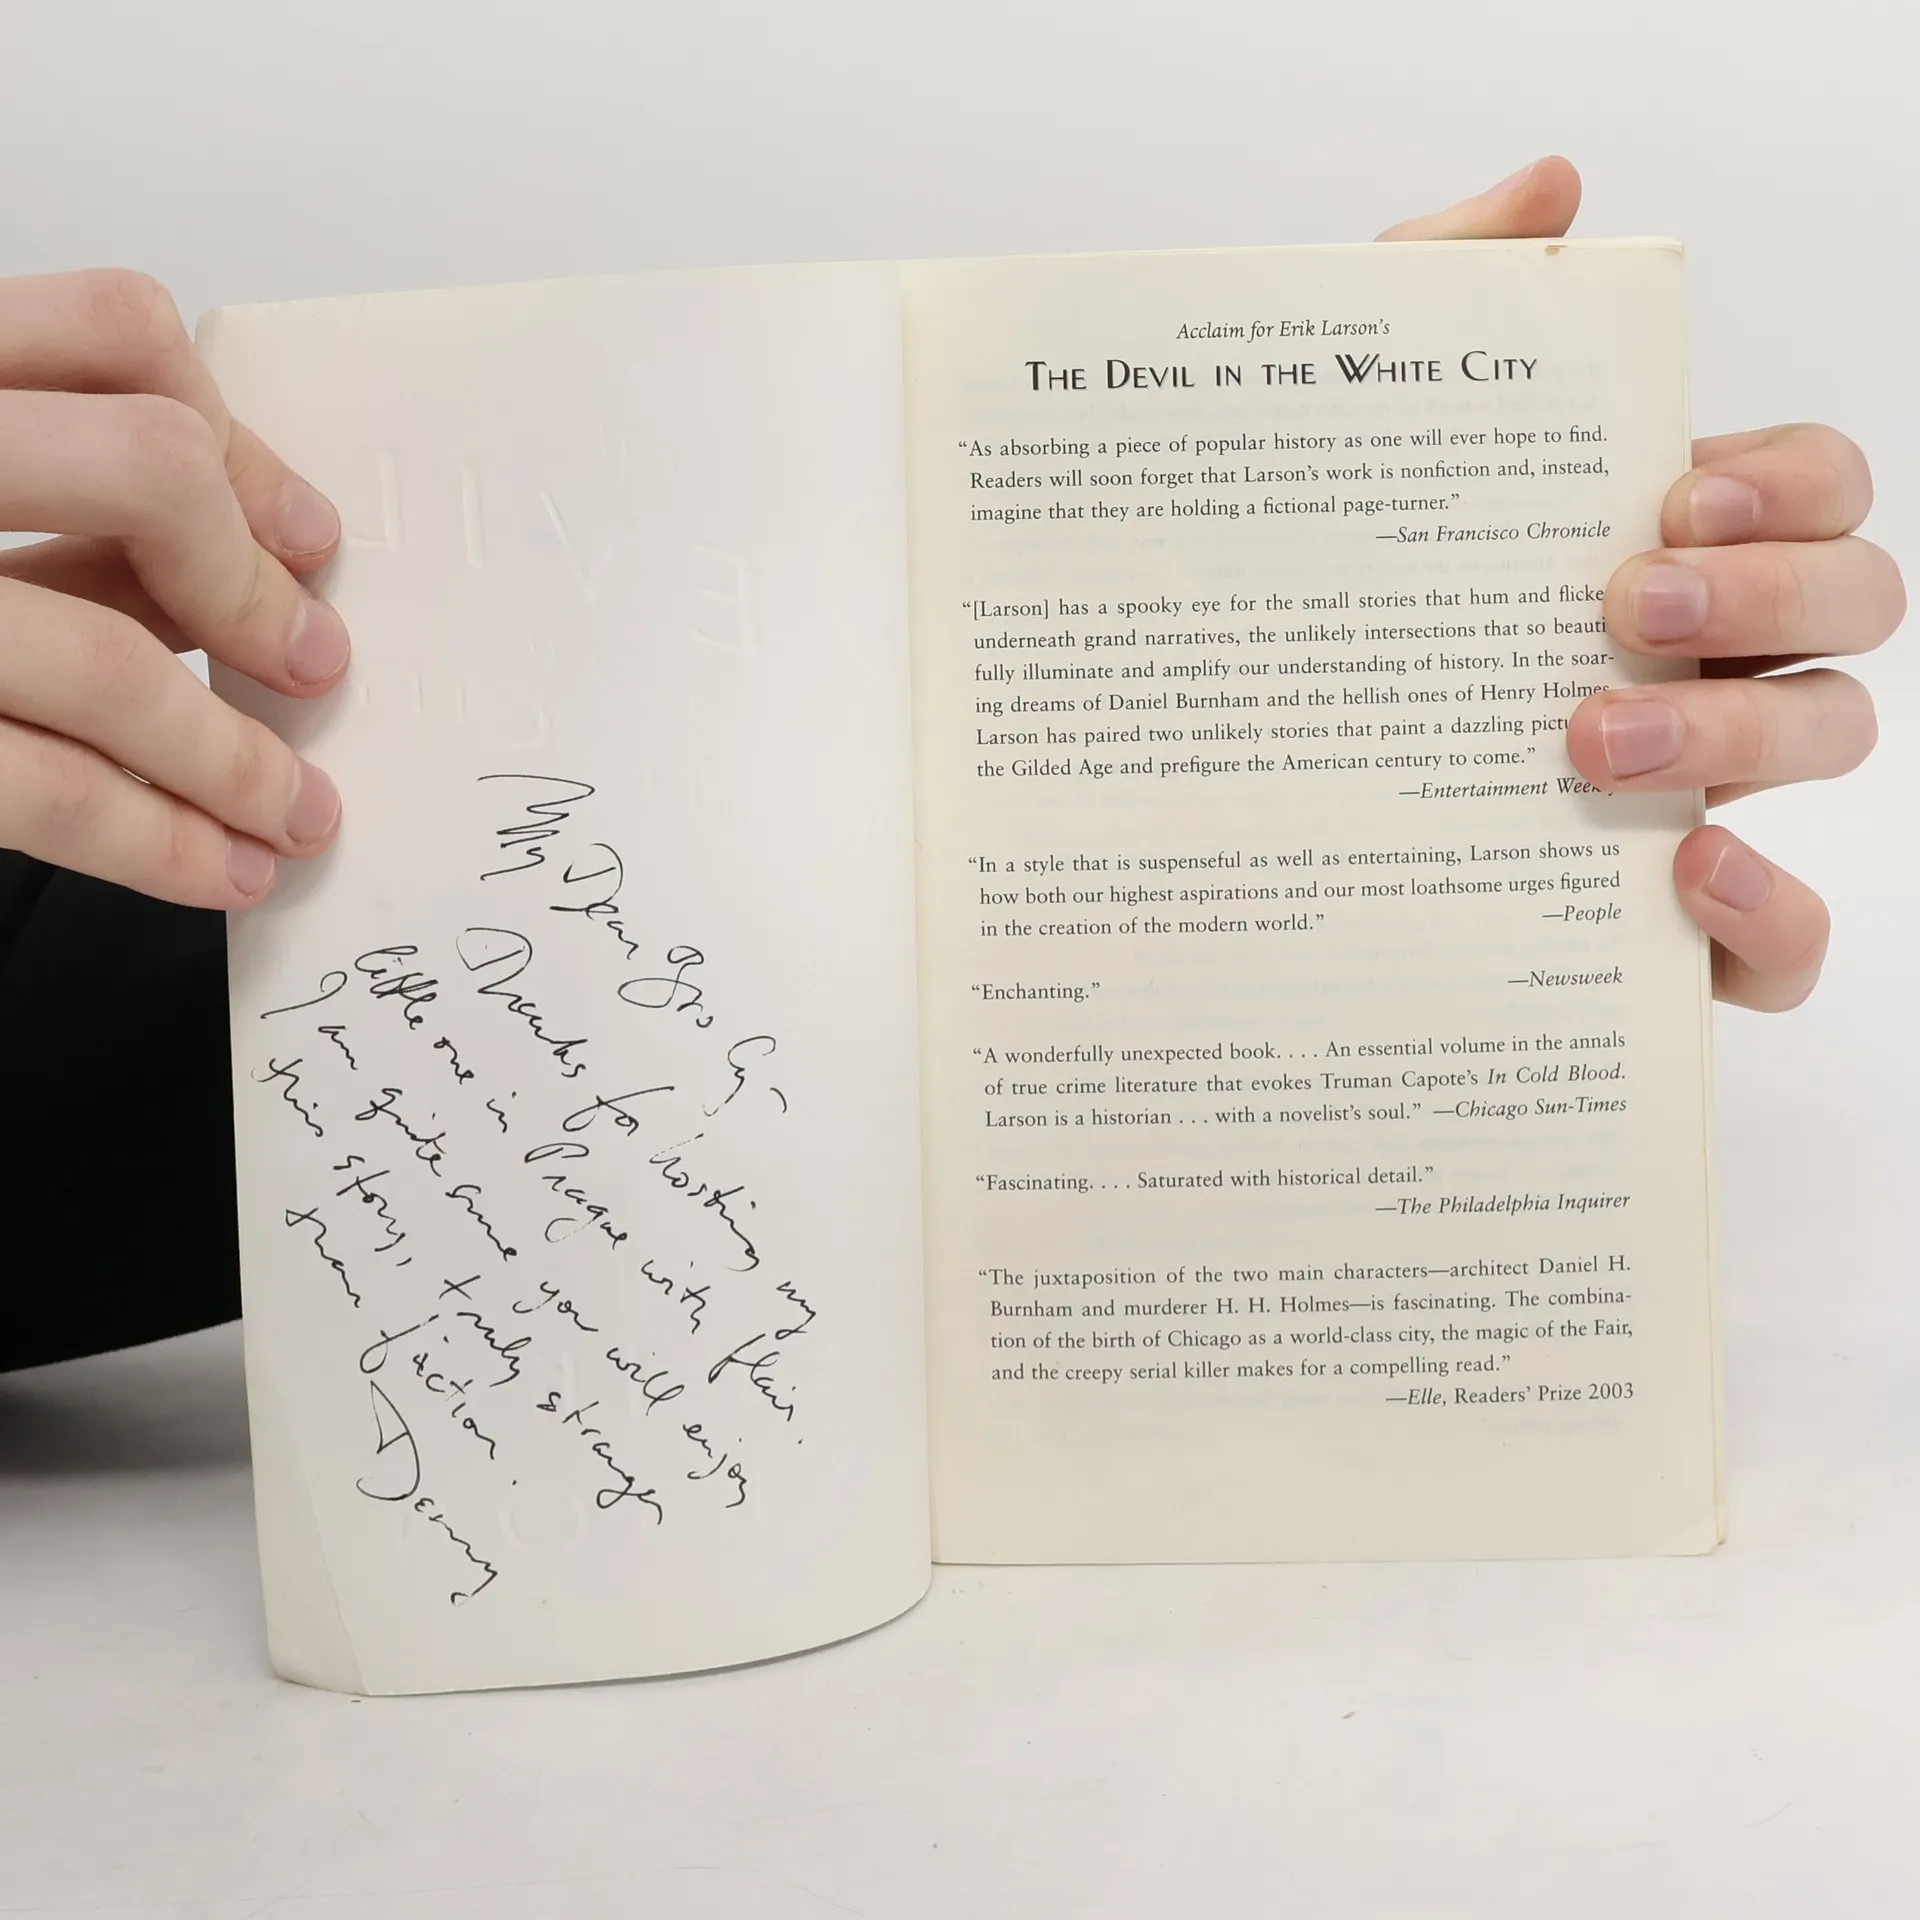 My Dear Bro Cy-
Thanks for hosting my
little one in Prague with flair.
I am quite sure you will enjoy
this story, truly stranger
than fiction.
Denny
Acclaim for Erik Larson's
THE DEVIL IN THE WHITE CITY
“As absorbing a piece of popular history as one will ever hope to find.
Readers will soon forget that Larson's work is nonfiction and, instead,
imagine that they are holding a fictional page-turner.”
—San Francisco Chronicle
“[Larson] has a spooky eye for the small stories that hum and flicke
underneath grand narratives, the unlikely intersections that so beauti
fully illuminate and amplify our understanding of history. In the soar-
ing dreams of Daniel Burnham and the hellish ones of Henry Holmes
Larson has paired two unlikely stories that paint a dazzling pictu
the Gilded Age and prefigure the American century to come.”
—Entertainment Weekly
“In a style that is suspenseful as well as entertaining, Larson shows us
how both our highest aspirations and our most loathsome urges figured
in the creation of the modern world.” —People
“Enchanting.” —Newsweek
“A wonderfully unexpected book. . . . An essential volume in the annals
of true crime literature that evokes Truman Capote's In Cold Blood.
Larson is a historian . . . with a novelist's soul.” —Chicago Sun-Times
“Fascinating. . . . Saturated with historical detail.”
—The Philadelphia Inquirer
“The juxtaposition of the two main characters—architect Daniel H.
Burnham and murderer H. H. Holmes—is fascinating. The combina-
tion of the birth of Chicago as a world-class city, the magic of the Fair,
and the creepy serial killer makes for a compelling read.”
—Elle, Readers' Prize 2003